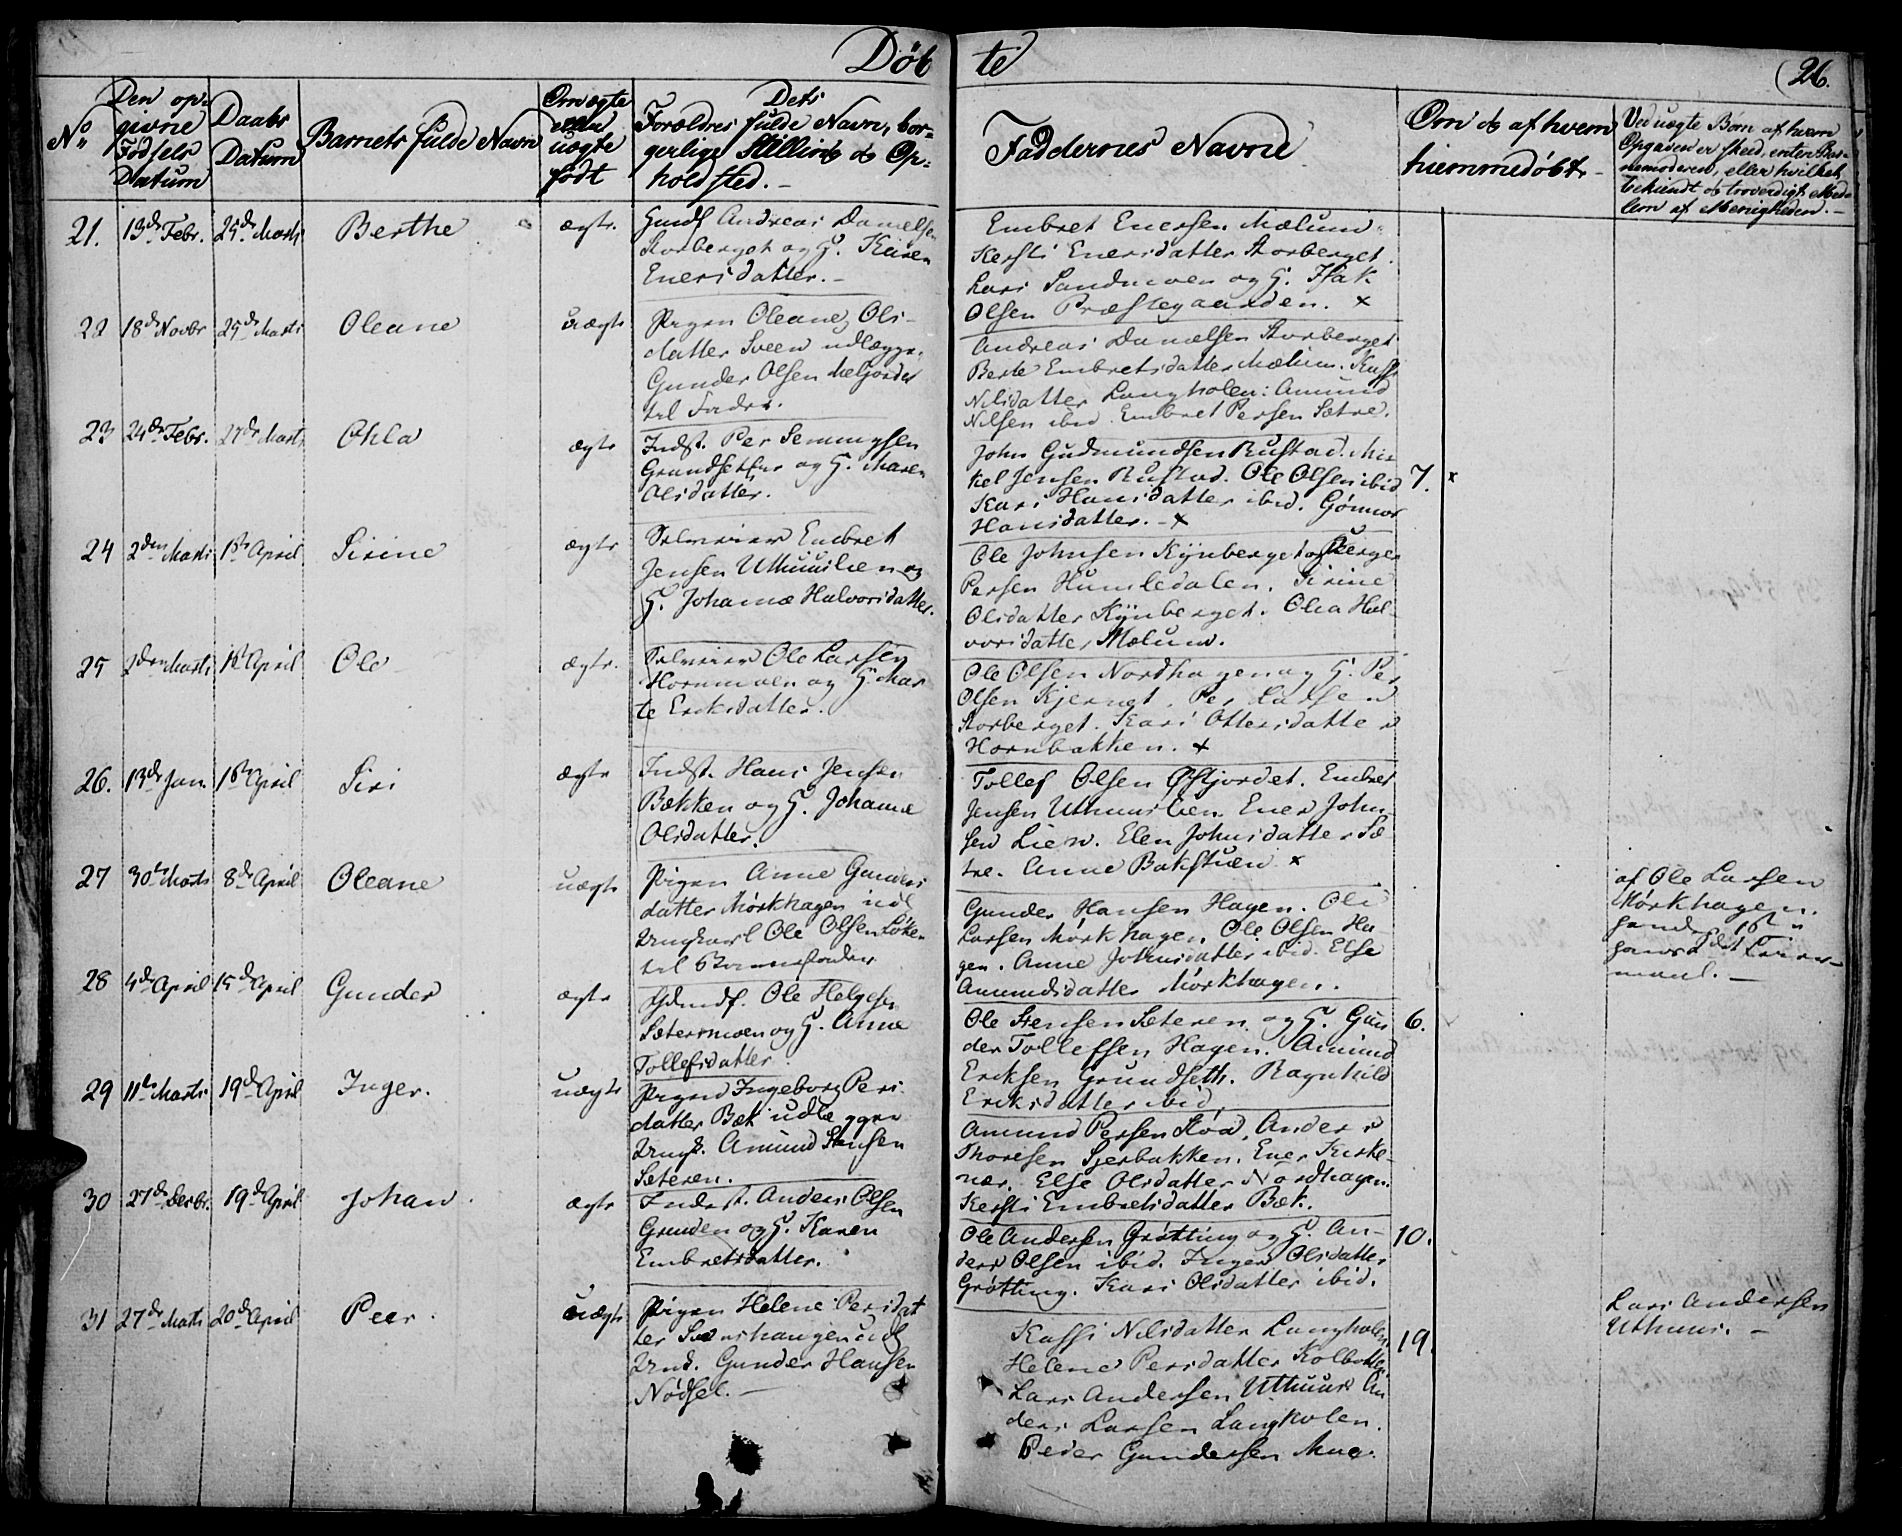 Døbte
26.
No
Den opgivne Fødsels Datum
Daabs Datum
Barnets fulde Navn
Om ægte eller uægte født
Dets Forældres fulde Navn, borgerlige Stilling og Opholdsted.
Faddernes Navne
Om og af hvem hiemmedøbt
Ved uægte Børn af hvem Opgaven er skeed, enten Barnemoderen, eller hvilket bekiendt og troverdigt Medlem af Menigheden.
21. 13de Febr. 25de Marts Berthe ægte.
Gmdf Andreas Danielsen
Storberget og H. Karen
Enersdatter.
Embret Enersen Mælum.
Kersti Enersdatter Storberget.
Lars Sandmoen og H. Isak
Olsen Præstegaarden. x
22 18de Novbr 25de Marts Oleane uægte
Pigen Oleane Ols-
datter Sveen udlægger
Gunder Olsen Meljordet
til Fader.
Andreas Danielsen Storberget
Berte Embretsdatter Mælum.
Nilsdatter Langholen: Amund
Nilsen ibid. Embret Persen Sætre.
23 24de Febr. 27de Marts Ohla ægte
Indst. Per Semmingsen
Grundsetter og H. Maren
Olsdatter.
John Gudmundsen Rustad. Mik-
kel Jensen Rustad. Ole Olsen ibid
Kari Hansdatter ibid. Gønnor
Hansdatter. - x
7. x
24 2den Marts 1ste April Sirine ægte
Selveier Embret
Jensen Uthuuslien og
H. Johanne Halvorsdatter.
Ole Johnsen Kynberget og Børger
Persen Humledalen. Sirine
Olsdatter Kynberget. Olea Hal-
vorsdatter Mælum.
25 2den Marts 1ste April Ole ægte.
Selveier Ole Larsen
Hornmoen og H. Mar
te Eriksdatter.
Ole Olsen Nordhagen og H. Per
Olsen Kjernet. Per Larsen
Storberget. Kari Ottersdatter
Hornbakken. x
26. 13de Jan. 1ste April Siri ægte
Indst. Hans Jensen
Bækken og H. Johanne
Olsdatter.
Tollef Olsen Østjordet. Embret
Jensen Uthuuslien. Ener John-
sen Lien. Elen Johnsdatter Sæ-
tre. Anne Bakstuen x
27 30te Marts 8de April Oleane uægte
Pigen Anne Gunders
datter Mørkhagen udl
Ungkarl Ole Olsen Løken
til Barnefader
Gunder Hansen Hagen. Ole
Larsen Mørkhagen. Ole Olsen Ha-
gen. Anne Johnsdatter ibid. Else
Amundsdatter Mørkhagen.
af Ole Larsen
Mørkhagen.
hendes 1ste
hans 2det Leier-
maal. -
28 4de April 15de April Gunder ægte
Gdmdf. Ole Helgesen
Sætermoen og H. Anne
Tollefsdatter
Ole Stensen Sæteren og H. Gun
der Tollefsen Hagen. Amund
Eriksen Grundseth. Ragnhild
Eriksdatter ibid.
6.
29 11te Marts 19de April Inger. uægte
Pigen Ingeborg Pers-
datter Bæk udlægger
Ungk. Amund Stensen
Sæteren.
Amund Persen Stöa, Anders
Thoresen Sjerbakken. Ener Kirke-
nær. Else Olsdatter Nordhagen.
Kersti Embretsdatter Bæk.
30 27de Decbr. 19de April Johan ægte
Inderst. Anders Olsen
Grinden og H. Karen
Embretsdatter.
Ole Andersen Grøtting og H. An-
ders Olsen ibid. Inger Olsdatter
Grøtting. Kari Olsdatter ibid.
10.
31 27de Marts 20de April Peer. uægte
Pigen Helene Persdat
ter Svenshaugen udl
Und. Gunder Hansen
Nødsel. -
Nilsdatter Langholen
Helene Persdatter Kolbotten
Lars Andersen Uthuus. An
ders Larsen Langholen.
Peder Gundersen Moe.
19.
Lars Andersen
Uthuus. -